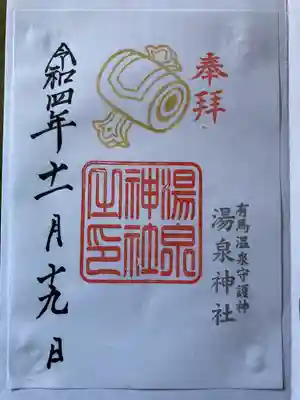 奉拝
有馬温泉守護神
湯泉神社
湯泉神社之印
令和四年十一月十九日